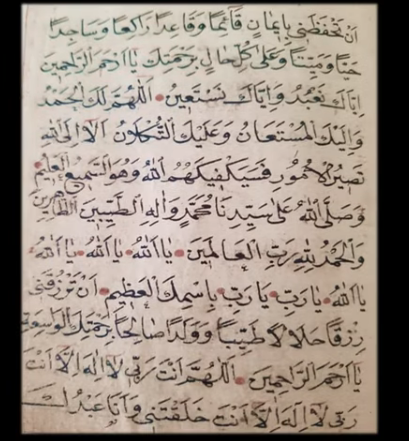 اَنْ تَحْفَظَنِي بِاِيمَانٍ قَآئِمًا وَقَاعِدًا رَاكِعًا وَسَاجِدًا
حَيًّا وَمَيِّتًا وَعَلٰى كُلِّ حَالٍ بِرَحْمَتِكَ يَا اَرْحَمَ الرَّاحِمِينَ
اِيَّاكَ نَعْبُدُ وَاِيَّاكَ نَسْتَعِينُ اَللّٰهُمَّ لَكَ الْحَمْدُ
وَاِلَيْكَ الْمُسْتَعَانُ وَعَلَيْكَ التُّكْلَانُ اَلَا اِلَى اللهِ
تَصِيرُ الْاُمُورُ فَسَيَكْفِيكَهُمُ اللهُ وَهُوَ السَّمِيعُ الْعَلِيمُ
وَصَلَّى اللهُ عَلٰى سَيِّدِنَا مُحَمَّدٍ وَاٰلِهِ الطَّيِّبِينَ الطَّاهِرِينَ
وَالْحَمْدُ لِلّٰهِ رَبِّ الْعَالَمِينَ يَا اَللهُ يَا اَللهُ يَا اَللهُ
يَا اَللهُ يَا رَبِّ يَا رَبِّ بِاسْمِكَ الْعَظِيمِ اَنْ تَرْزُقَنِي
رِزْقًا حَلَالًا طَيِّبًا وَوَلَدًا صَالِحًا بِرَحْمَتِكَ الْوَاسِعَةِ
يَا اَرْحَمَ الرَّاحِمِينَ اَللّٰهُمَّ اَنْتَ رَبِّي لَا اِلٰهَ اِلَّا اَنْتَ
رَبِّي لَا اِلٰهَ اِلَّا اَنْتَ خَلَقْتَنِي وَاَنَا عَبْدُكَ